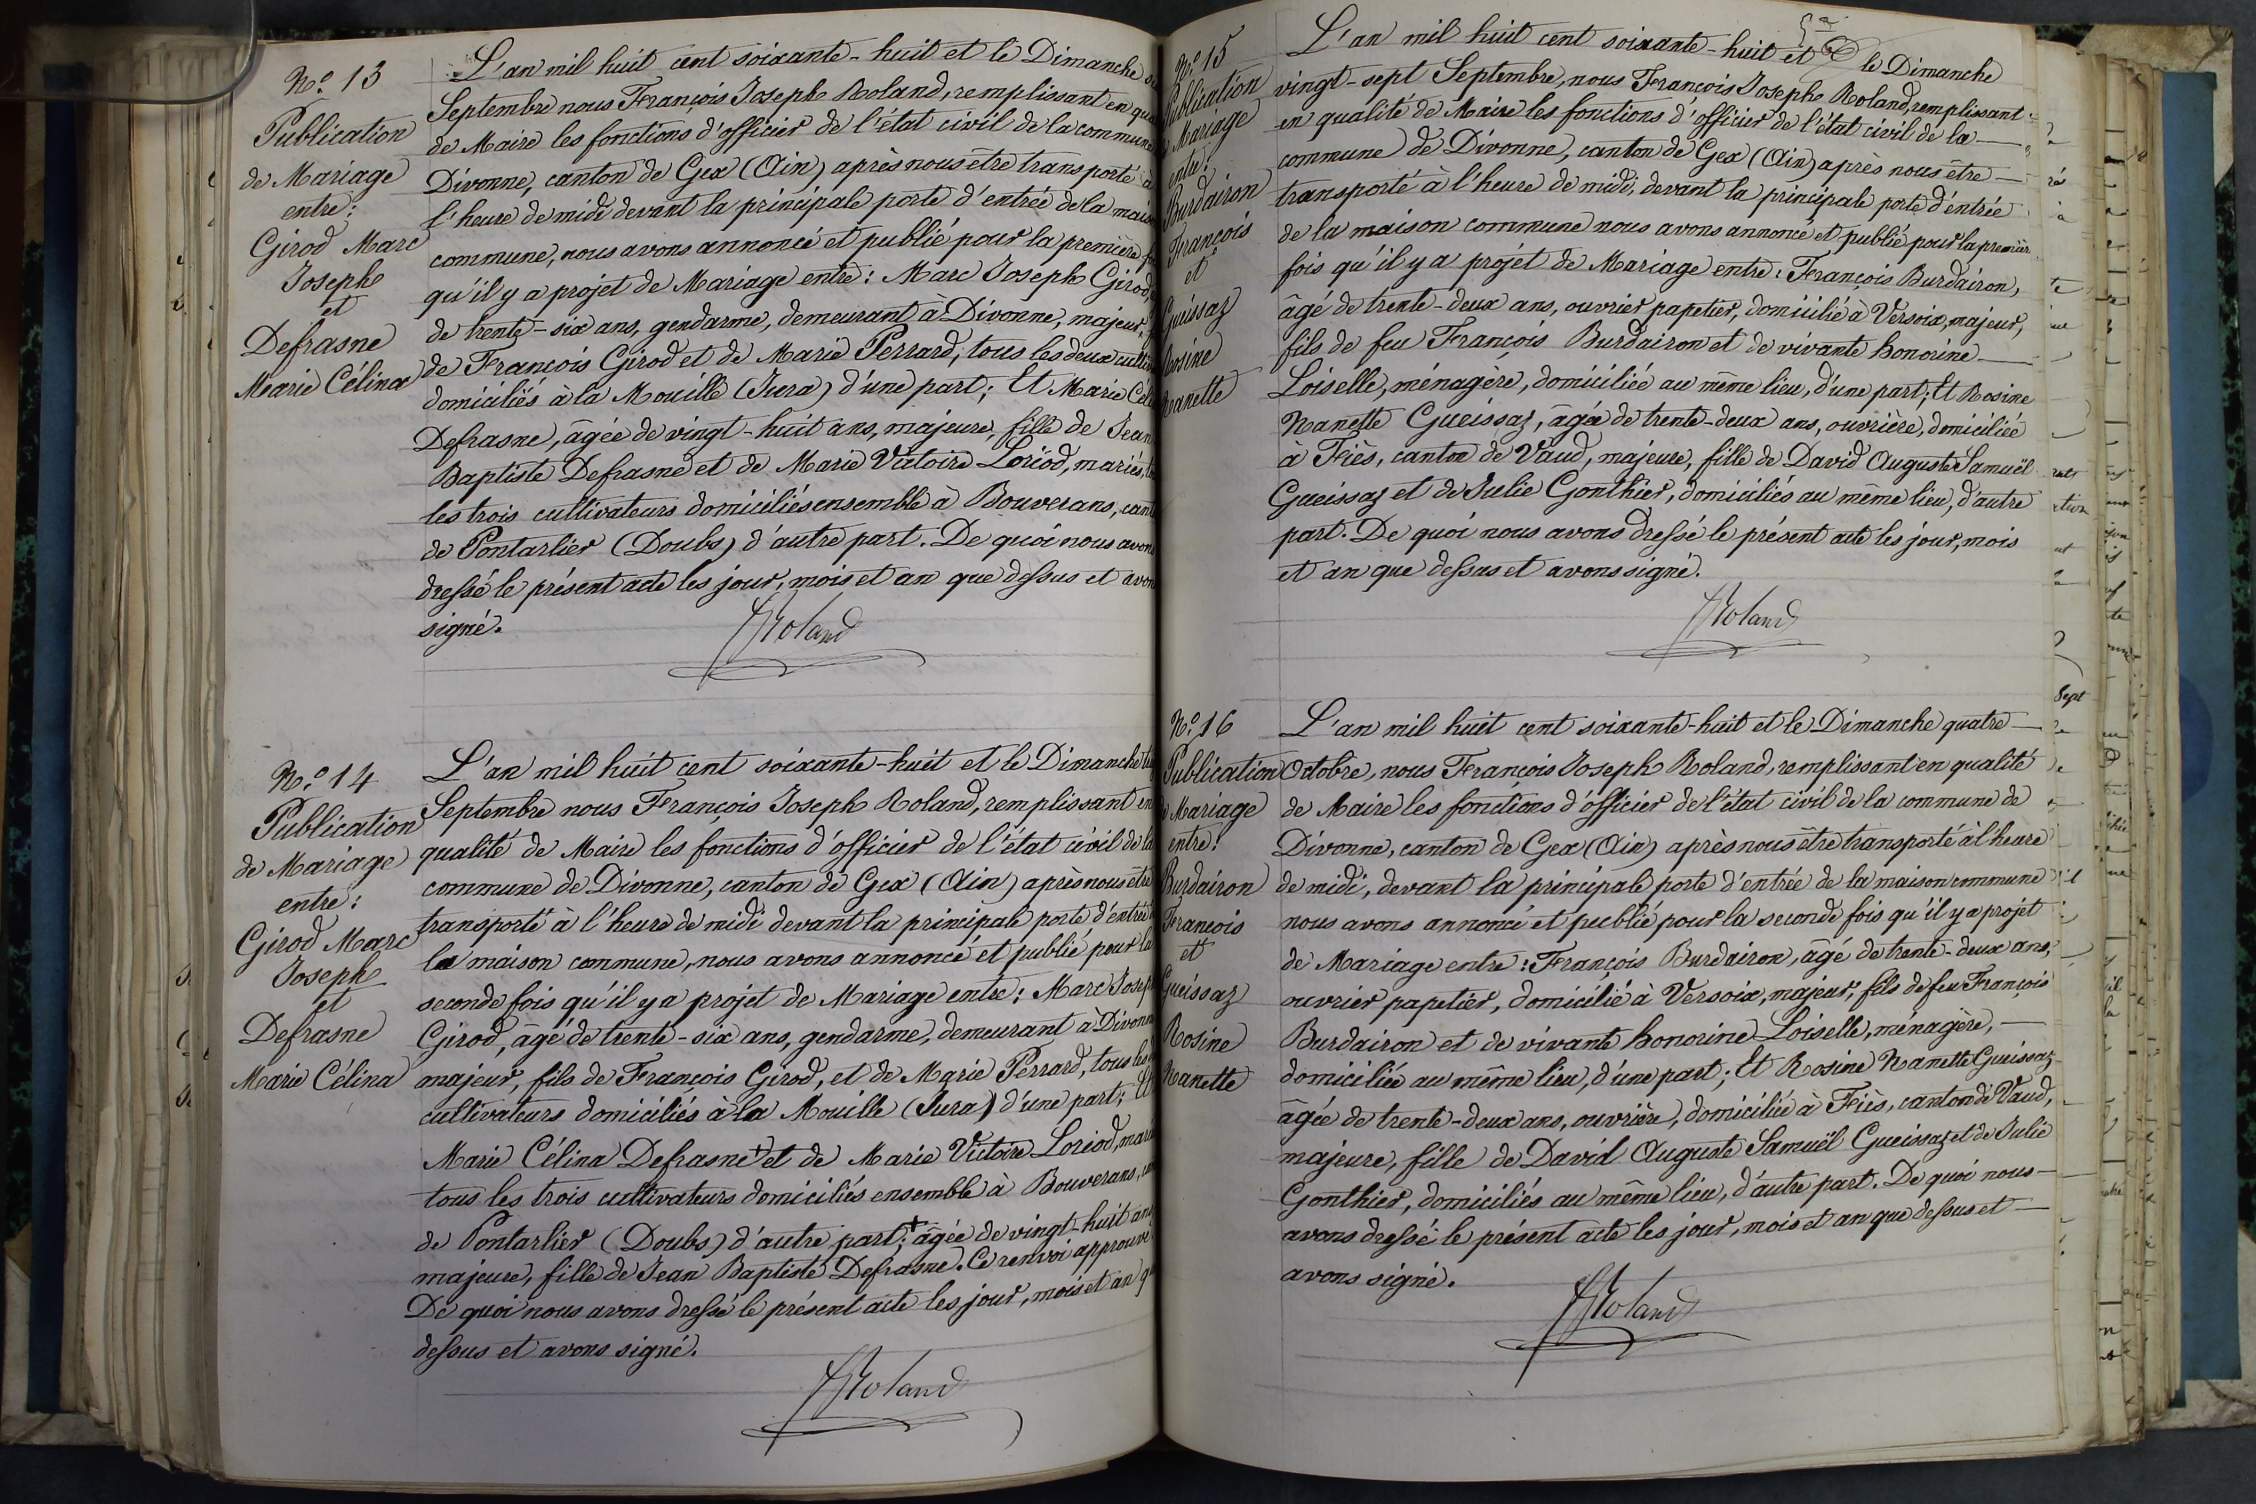 N.º 13
Publication
de Mariage
entre:
Girod Marc
Joseph
et
Defrasne
Marie Célina
L'an mil huit cent soixante-huit et le Dimanche
Septembre nous François Joseph Roland, remplissant en
de Maire les fonctions d'officier de l'état civil de la commune
Divonne, canton de Gex (Ain) après nous être transporté à
l'heure de midi devant la principale porte d'entrée de la
commune, nous avons annoncé et publié pour la première
qu'il y a projet de Mariage entre: Marc Joseph Girod,
de trente-six ans, gendarme, demeurant à Divonne, majeur,
de François Girod et de Marie Perrard, tous les deux
domiciliés à la Mouille (Jura) d'une part; Et Marie
Defrasne, âgée de vingt-huit ans, majeure, fille de Jean
Baptiste Defrasne et de Marie Victoire Loriod, mariés,
les trois cultivateurs domiciliés ensemble à Bouverans,
de Pontarlier (Doubs) d'autre part. De quoi nous avons
dressé le présent acte les jour, mois et an que dessus et
signé.
Roland
N.º 14
Publication
de Mariage
entre:
Girod Marc
Joseph
et
Defrasne
Marie Célina
L'an mil huit cent soixante-huit et le Dimanche
Septembre nous François Joseph Roland, remplissant en
qualité de Maire les fonctions d'officier de l'état civil de la
commune de Divonne, canton de Gex (Ain) après nous être
transporté à l'heure de midi devant la principale porte d'entrée
la maison commune, nous avons annoncé et publié pour la
seconde fois qu'il y a projet de Mariage entre: Marc Joseph
Girod, âgé de trente-six ans, gendarme, demeurant à Divonne
majeur, fils de François Girod, et de Marie Perrard, tous
cultivateurs domiciliés à la Mouille (Jura) d'une part; Et
Marie Célina Defrasne + et de Marie Victoire Loriod,
tous les trois cultivateurs domiciliés ensemble à Bouverans,
de Pontarlier (Doubs) d'autre part; + âgée de vingt-huit ans
majeure, fille de Jean Baptiste Defrasne. Ce renvoi approuvé
De quoi nous avons dressé le présent acte les jour, mois et an
dessus et avons signé.
Roland
N.º 15
Publication
Mariage
entre:
Burdairon
François
et
Gueissaz
Rosine
Nanette
L'an mil huit cent soixante-huit et le Dimanche
vingt-sept Septembre, nous François Joseph Roland, remplissant
en qualité de Maire les fonctions d'officier de l'état civil de la
commune de Divonne, canton de Gex (Ain) après nous être
transporté à l'heure de midi, devant la principale porte d'entrée
de la maison commune nous avons annoncé et publié pour la première
fois qu'il y a projet de Mariage entre: François Burdairon,
âgé de trente-deux ans, ouvrier papetier, domicilié à Versoix, majeur,
fils de feu François Burdairon et de vivante honorine
Loiselle, ménagère, domiciliée au même lieu, d'une part; Et Rosine
Nanette Gueissaz, âgée de trente-deux ans, ouvrière, domiciliée
à Fiès, canton de Vaud, majeure, fille de David Auguste Samuël
Gueissaz et de Julie Gonthier, domiciliés au même lieu, d'autre
part. De quoi nous avons dressé le présent acte les jour, mois
et an que dessus et avons signé.
Roland
N.º 16
Publication
Mariage
entre:
Burdairon
François
et
Gueissaz
Rosine
Nanette
L'an mil huit cent soixante-huit et le Dimanche quatre
Octobre, nous François Joseph Roland, remplissant en qualité
de Maire les fonctions d'officier de l'état civil de la commune de
Divonne, canton de Gex (Ain) après nous être transporté à l'heure
de midi, devant la principale porte d'entrée de la maison commune
nous avons annoncé et publié pour la seconde fois qu'il y a projet
de Mariage entre: François Burdairon, âgé de trente-deux ans,
ouvrier papetier, domicilié à Versoix, majeur, fils de feu François
Burdairon et de vivante honorine Loiselle, ménagère,
domiciliée au même lieu, d'une part; Et Rosine Nanette Gueissaz
âgée de trente-deux ans, ouvrière, domiciliée à Fiès, canton de Vaud,
majeure, fille de David Auguste Samuël Gueissaz et de Julie
Gonthier, domiciliés au même lieu, d'autre part. De quoi nous
avons dressé le présent acte les jour, mois et an que dessus et
avons signé.
Roland